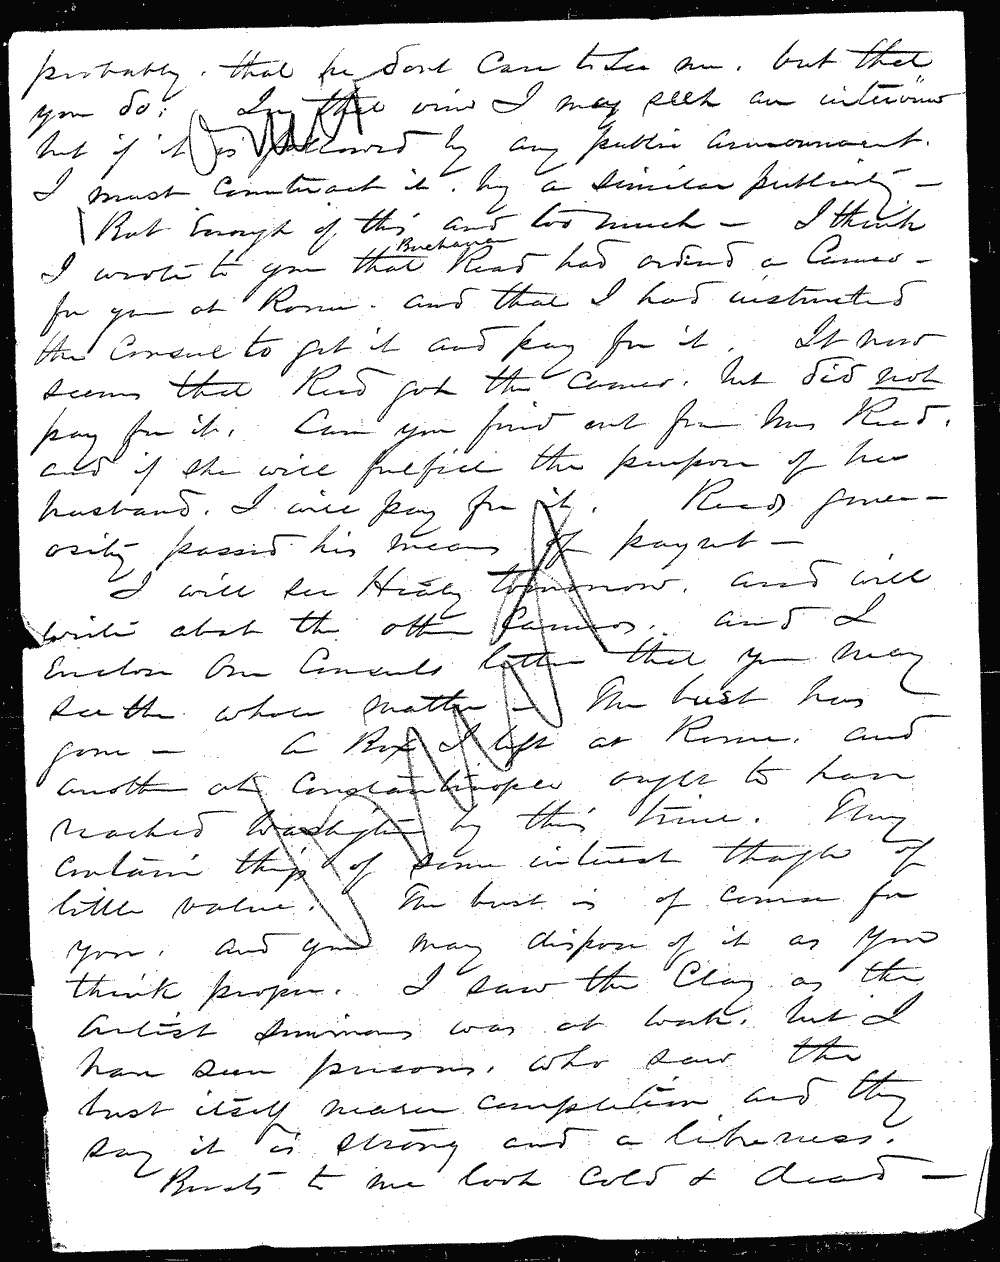 probably. that he dont care to see me. but that
you do: In this view I may seek an interview
but if it is followed by any public announcement.
I must counteract it. by a similar publicity —
But Enough of this and too much — I think
I wrote to you that Buchanan Read had ordered a Cameo —
for you at Rome. and that I had instructed
the Consul to get it and pay for it. It now
seems that Read got the Cameo. but did not
pay for it. Can you find out from Mrs Read.
and if she will fulfill the purpose of her
husband. I will pay for it. Reads gener—
osity passed his means of payment —
I will see Healy tomorrow. and will
write about the other Cameos. and I
Enclose One Consuls letter that you may
see the whole matter — The bust has
gone — A Box I left at Rome. and
another at Constantinople ought to have
reached Washington by this time. They
contain things of some interest though of
little value. The bust is of course for
you. and you may dispose of it as you
think proper. I saw the Clay as the
Artist Simmons was at work. but I
have seen persons. who saw the
bust itself nearer completion and they
say it is strong and a likeness.
Busts to me look cold & dead —